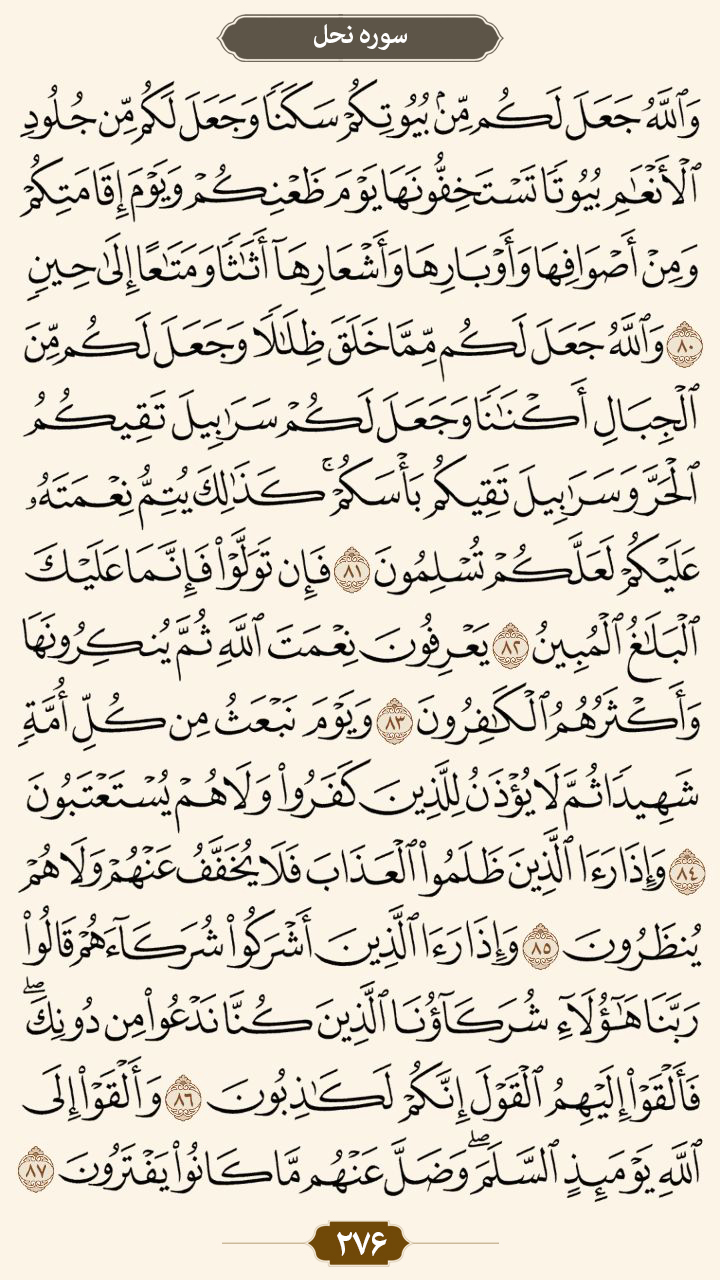 سوره نحل
وَٱللَّهُ جَعَلَ لَكُم مِّنۢ بُيُوتِكُمْ سَكَنًا وَجَعَلَ لَكُم مِّن جُلُودِ
ٱلْأَنْعَٰمِ بُيُوتًا تَسْتَخِفُّونَهَا يَوْمَ ظَعْنِكُمْ وَيَوْمَ إِقَامَتِكُمْ
وَمِنْ أَصْوَافِهَا وَأَوْبَارِهَا وَأَشْعَارِهَآ أَثَٰثًا وَمَتَٰعًا إِلَىٰ حِينٍ
٨٠ وَٱللَّهُ جَعَلَ لَكُم مِّمَّا خَلَقَ ظِلَٰلًا وَجَعَلَ لَكُم مِّنَ
ٱلْجِبَالِ أَكْنَٰنًا وَجَعَلَ لَكُمْ سَرَٰبِيلَ تَقِيكُمُ
ٱلْحَرَّ وَسَرَٰبِيلَ تَقِيكُم بَأْسَكُمْ ۚ كَذَٰلِكَ يُتِمُّ نِعْمَتَهُۥ
عَلَيْكُمْ لَعَلَّكُمْ تُسْلِمُونَ ٨١ فَإِن تَوَلَّوْا۟ فَإِنَّمَا عَلَيْكَ
ٱلْبَلَٰغُ ٱلْمُبِينُ ٨٢ يَعْرِفُونَ نِعْمَتَ ٱللَّهِ ثُمَّ يُنكِرُونَهَا
وَأَكْثَرُهُمُ ٱلْكَٰفِرُونَ ٨٣ وَيَوْمَ نَبْعَثُ مِن كُلِّ أُمَّةٍ
شَهِيدًا ثُمَّ لَا يُؤْذَنُ لِلَّذِينَ كَفَرُوا۟ وَلَا هُمْ يُسْتَعْتَبُونَ
٨٤ وَإِذَا رَءَا ٱلَّذِينَ ظَلَمُوا۟ ٱلْعَذَابَ فَلَا يُخَفَّفُ عَنْهُمْ وَلَا هُمْ
يُنظَرُونَ ٨٥ وَإِذَا رَءَا ٱلَّذِينَ أَشْرَكُوا۟ شُرَكَآءَهُمْ قَالُوا۟
رَبَّنَا هَٰٓؤُلَآءِ شُرَكَآؤُنَا ٱلَّذِينَ كُنَّا نَدْعُوا۟ مِن دُونِكَ ۖ
فَأَلْقَوْا۟ إِلَيْهِمُ ٱلْقَوْلَ إِنَّكُمْ لَكَٰذِبُونَ ٨٦ وَأَلْقَوْا۟ إِلَى
ٱللَّهِ يَوْمَئِذٍ ٱلسَّلَمَ ۖ وَضَلَّ عَنْهُم مَّا كَانُوا۟ يَفْتَرُونَ ٨٧
۲۷۶